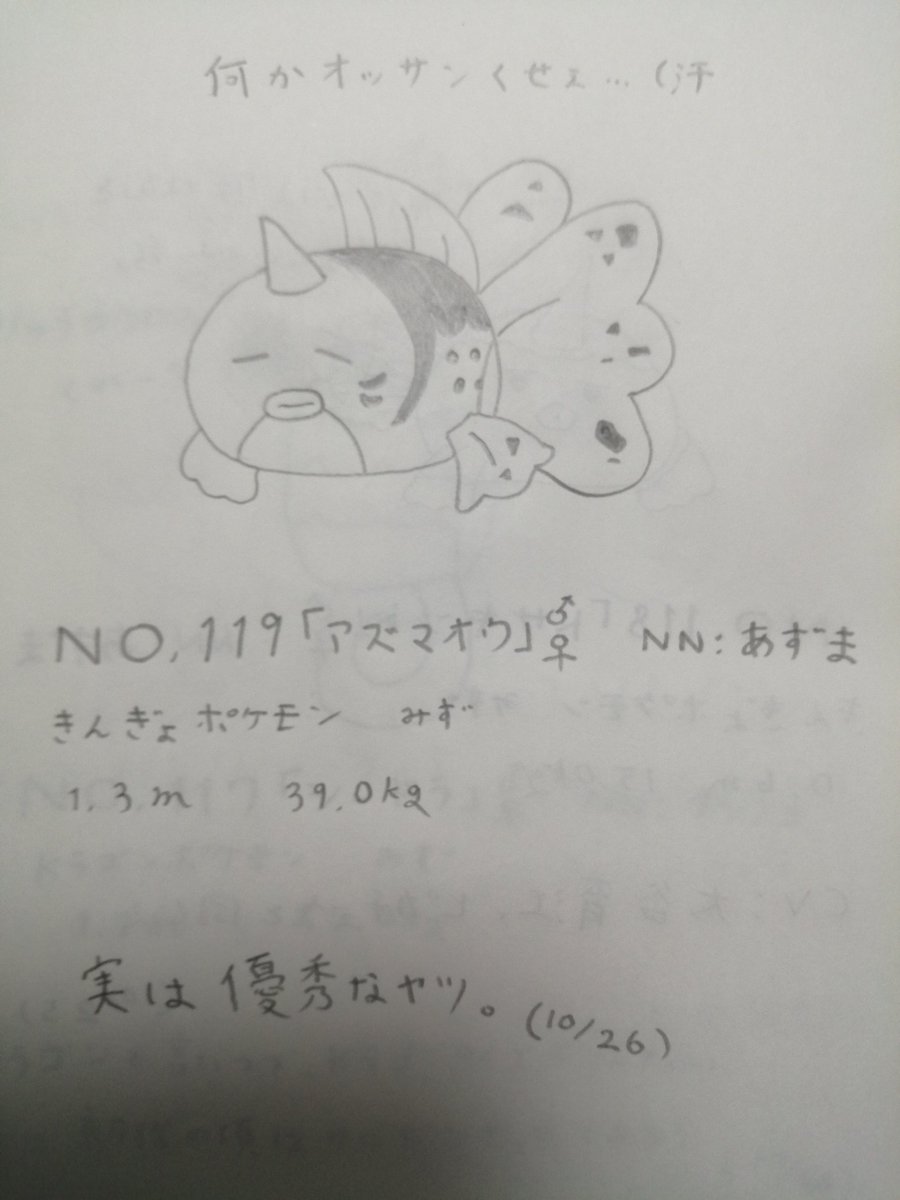 何かオッサンくせぇ…(汗
NO.119「アズマオウ」♂♀ NN:あずま
きんぎょポケモン みず
1.3m 39.0kg
実は優秀なヤツ。(10/26)